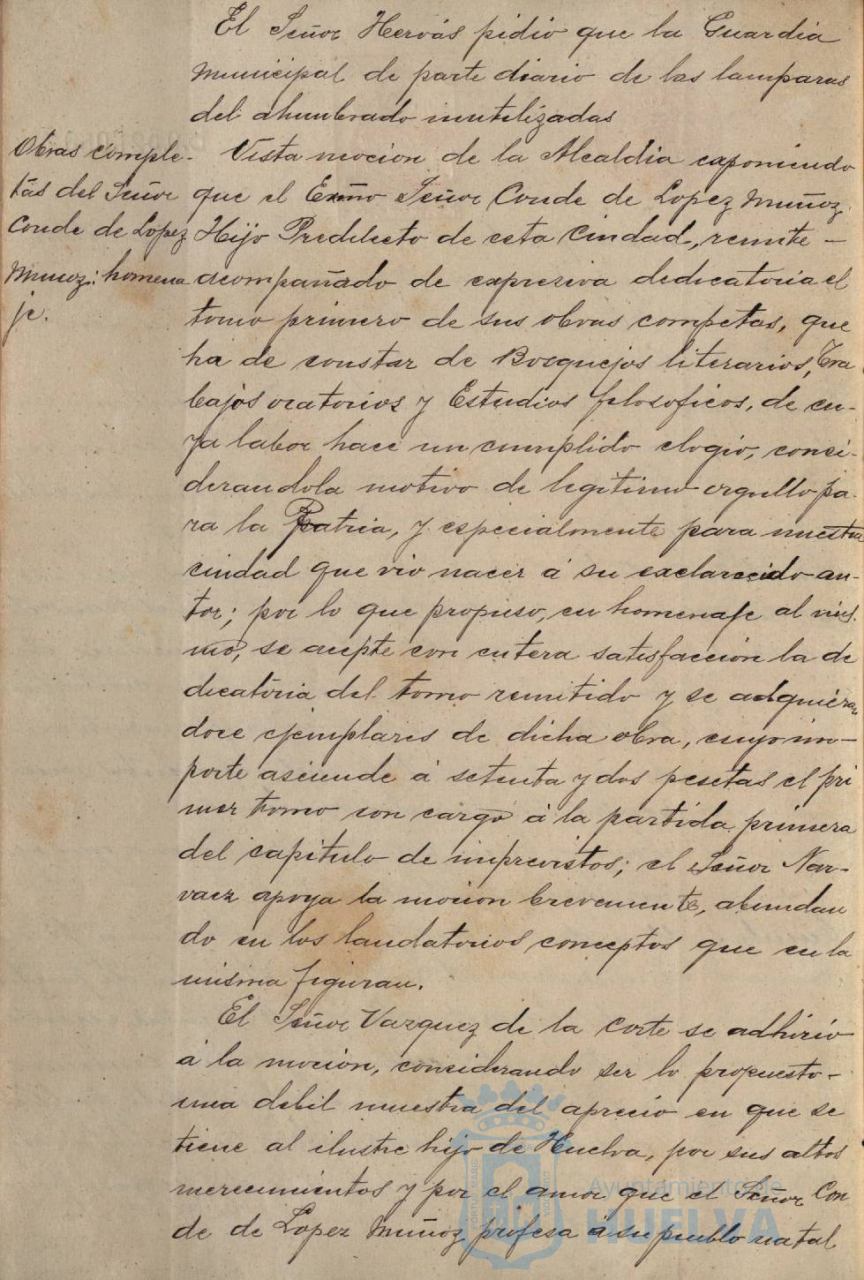 El Señor Hervás pidio que la Guardia
Municipal de parte diario de las lamparas
del alumbrado inutilizadas
Obras comple-
tas del Señor
Conde de Lopez
Munoz: homena
je.
Vista mocion de la Alcaldia exponiendo
que el Exmo Señor Conde de Lopez Muñoz
Hijo Predilecto de esta Ciudad, remite -
acompañado de expresiva dedicatoria el
tomo primero de sus obras competas, que
ha de constar de Bosquejos literarios, Tra
bajos oratorios y Estudios filosoficos, de cu-
ya labor hace un cumplido elogio, consi-
derandola motivo de legitimo orgullo pa-
ra la Patria, y especialmente para nuestra
ciudad que vio nacer á su exclarecido au-
tor; por lo que propuso, en homenaje al mis-
mo, se acepte con entera satisfacción la de
dicatoria del tomo remitido y se adquieran
doce ejemplares de dicha obra, cuyo im-
porte asciende á setenta y dos pesetas el pri
mer tomo con cargo á la partida primera
del capitulo de imprevistos; el Señor Nar-
vaez apoya la mocion brevemente, abundan
do en los laudatorios conceptos que en la
misma figuran.
El Señor Vazquez de la Corte se adhirio
á la moción, considerando ser lo propuesto -
una debil muestra del aprecio en que se
tiene al ilustre hijo de Huelva, por sus altos
merecimientos y por el amor que el Señor Con
de de Lopez Muñoz profesa á su pueblo natal
Ayuntamiento de
HUELVA